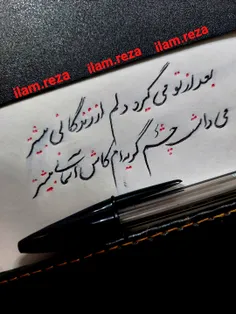 ilam.reza ilam.reza ilam.reza
بعد از تو می گیرد دلم از زندگانی بیشتر
می داشت چشم گریه ام کاش آسمانی بیشتر